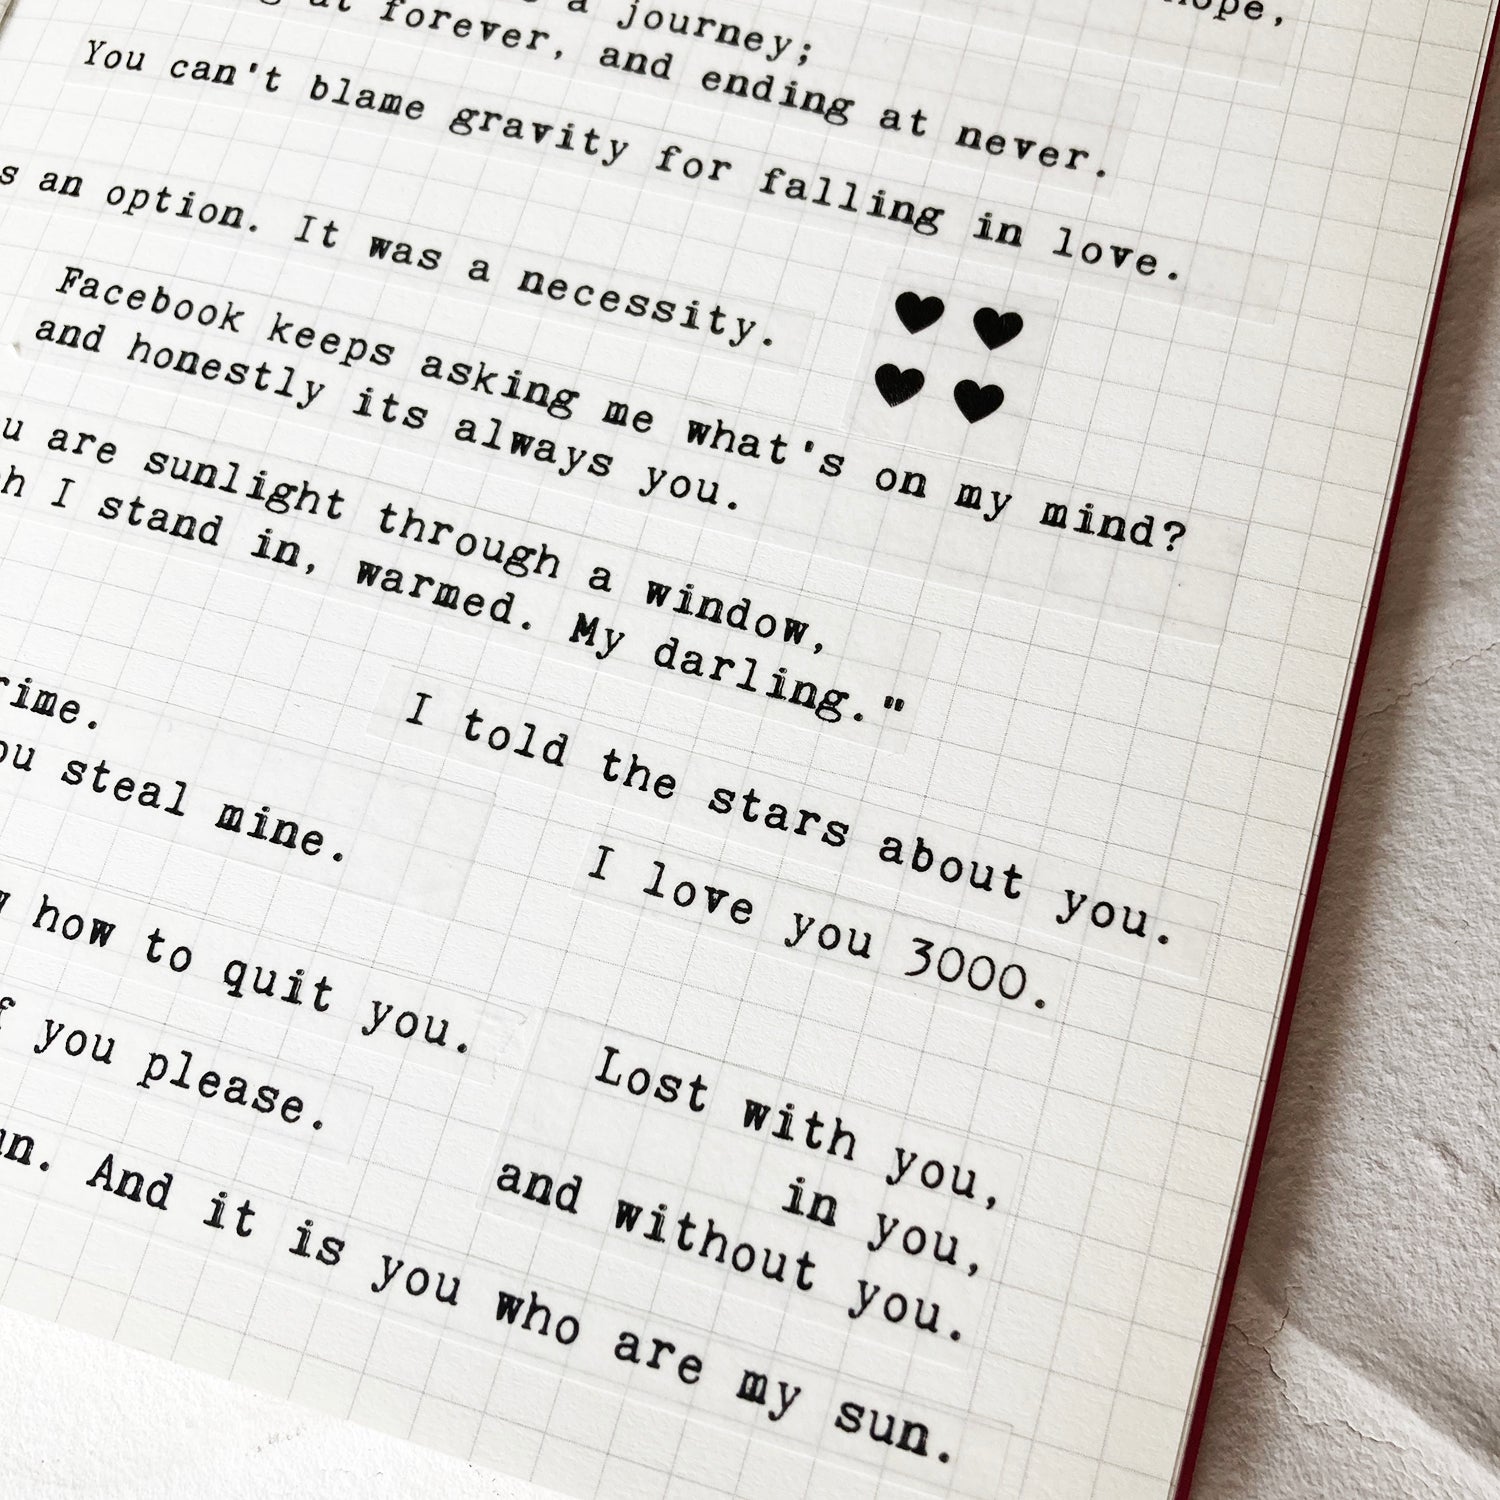 a journey;
at forever, and ending at never.
You can't blame gravity for falling in love.
an option. It was a necessity.
Facebook keeps asking me what's on my mind?
and honestly its always you.
are sunlight through a window,
I stand in, warmed. My darling."
I told the stars about you.
steal mine.
I love you 3000.
how to quit you.
you please.
Lost with you,
in you,
and without you.
And it is you who are my sun.